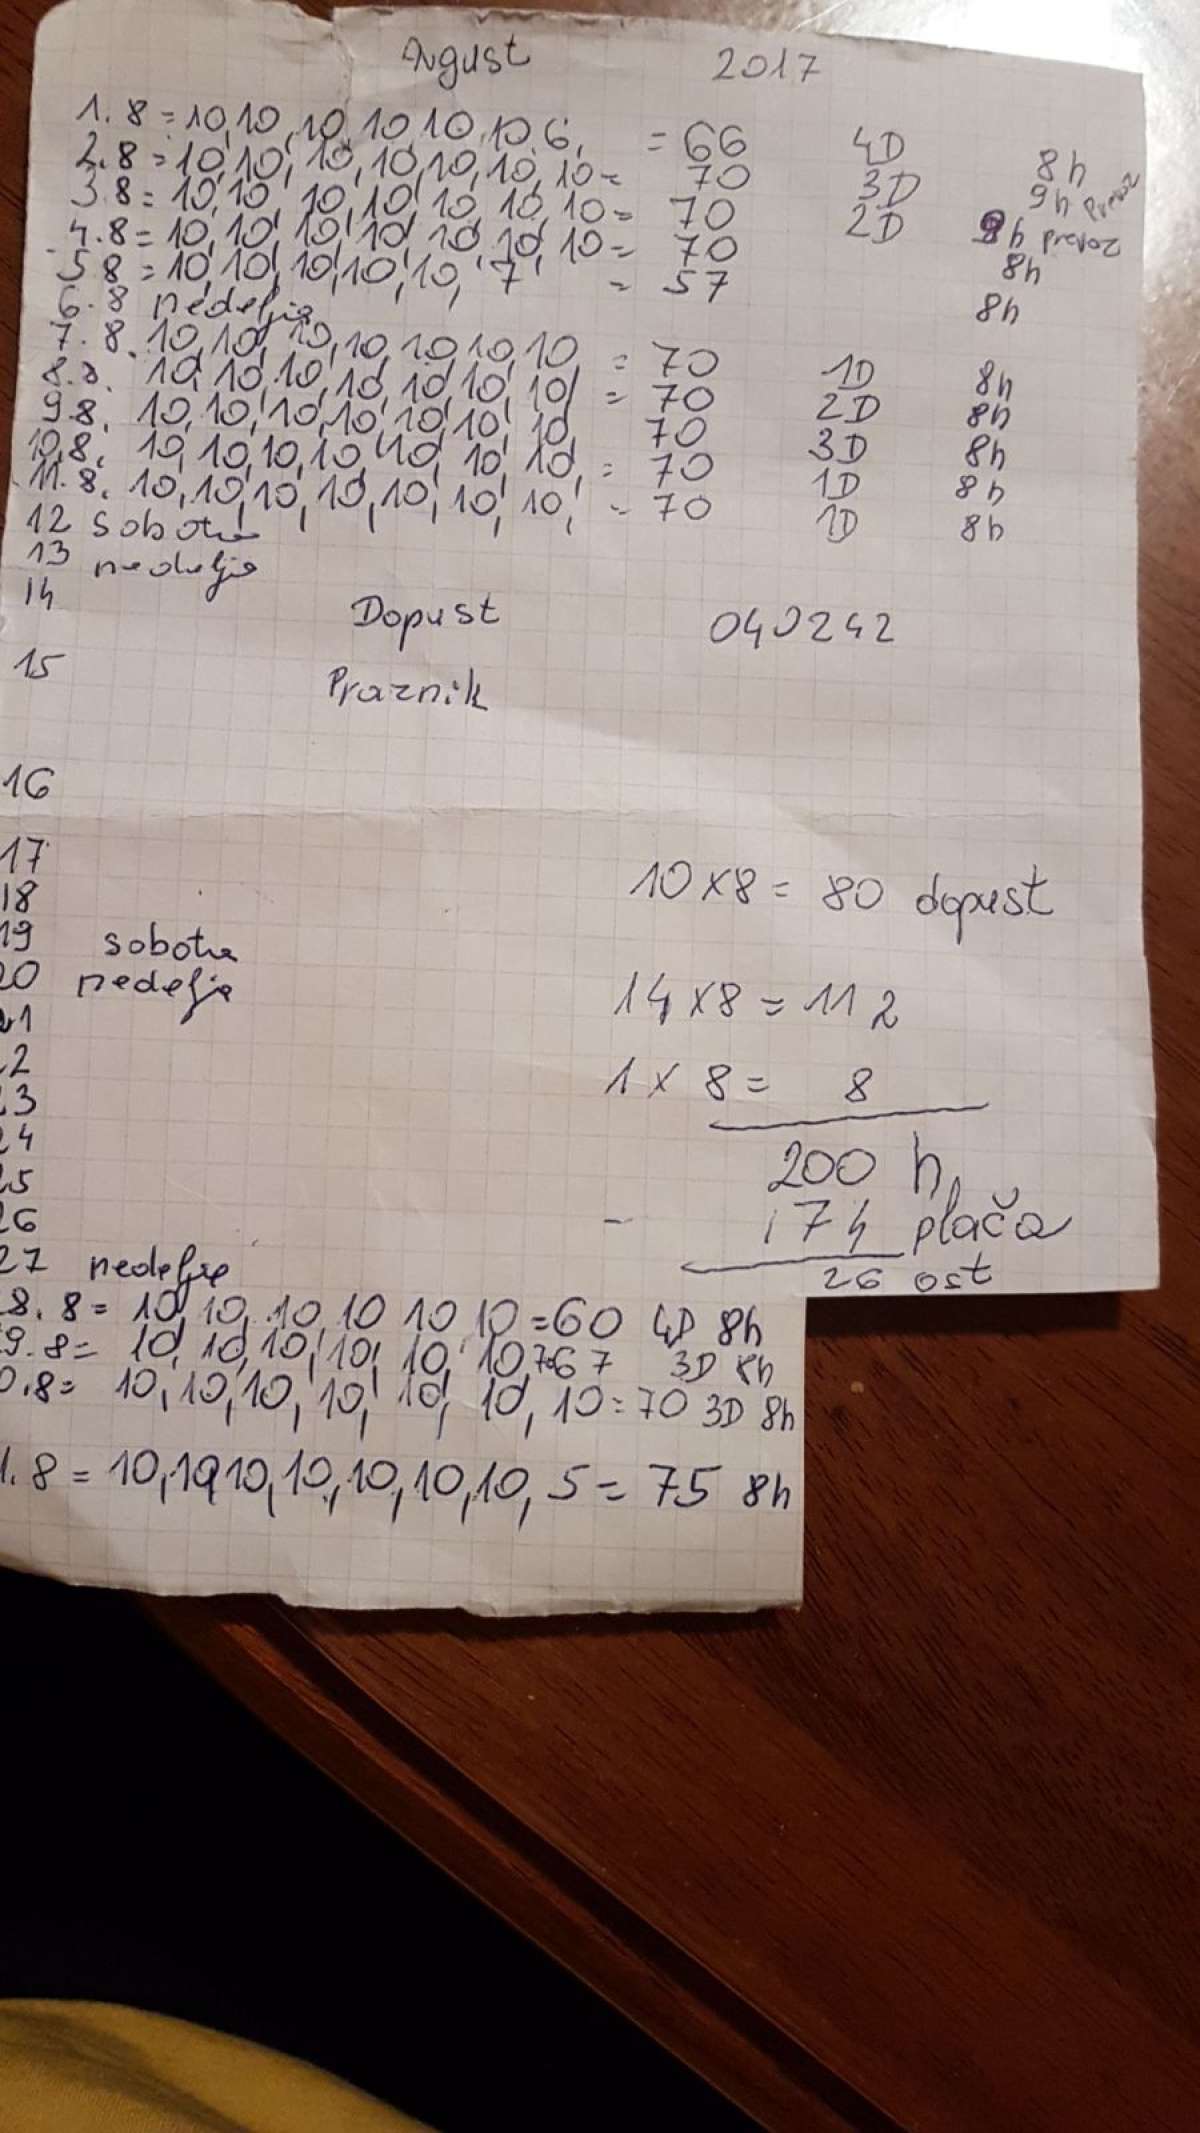 Avgust 2017
1. 8 = 10, 10, 10, 10, 10, 10, 6, = 66 4D 8h
2. 8 = 10, 10, 10, 10, 10, 10, 10 = 70 3D 9h prevoz
3. 8 = 10, 10, 10, 10, 10, 10, 10 = 70 2D h prevoz
4. 8 = 10, 10, 10, 10, 10, 10, 10 = 70 8h
5 8 = 10, 10, 10, 10, 10, 7 = 57 8h
6. 8 nedelja
7. 8. 10, 10, 10, 10, 10, 10, 10 = 70 1D 8h
8. 8. 10, 10, 10, 10, 10, 10, 10, = 70 2D 8h
9. 8, 10, 10, 10, 10, 10, 10, 10, 70 3D 8h
10, 8, 10, 10, 10, 10, 10, 10, 10, = 70 1D 8h
11. 8, 10, 10, 10, 10, 10, 10, 10, = 70 1D 8h
12 sobota
13 nedelja
14 Dopust 040242
15 Praznik
16
17
18 10 x 8 = 80 dopust
19 sobota
20 nedelja
21 14 x 8 = 112
22
23 1 x 8 = 8
24
25 200 h
26 - 174 plača
27 nedelja 26 ost
8. 8 = 10, 10, 10 10 10 10 = 60 4D 8h
9. 8 = 10, 10, 10, 10, 10, 10, 7 = 67 3D 8h
0. 8 = 10, 10, 10, 10, 10, 10, 10 = 70 3D 8h
1. 8 = 10, 10, 10, 10, 10, 10, 10, 5 = 75 8h